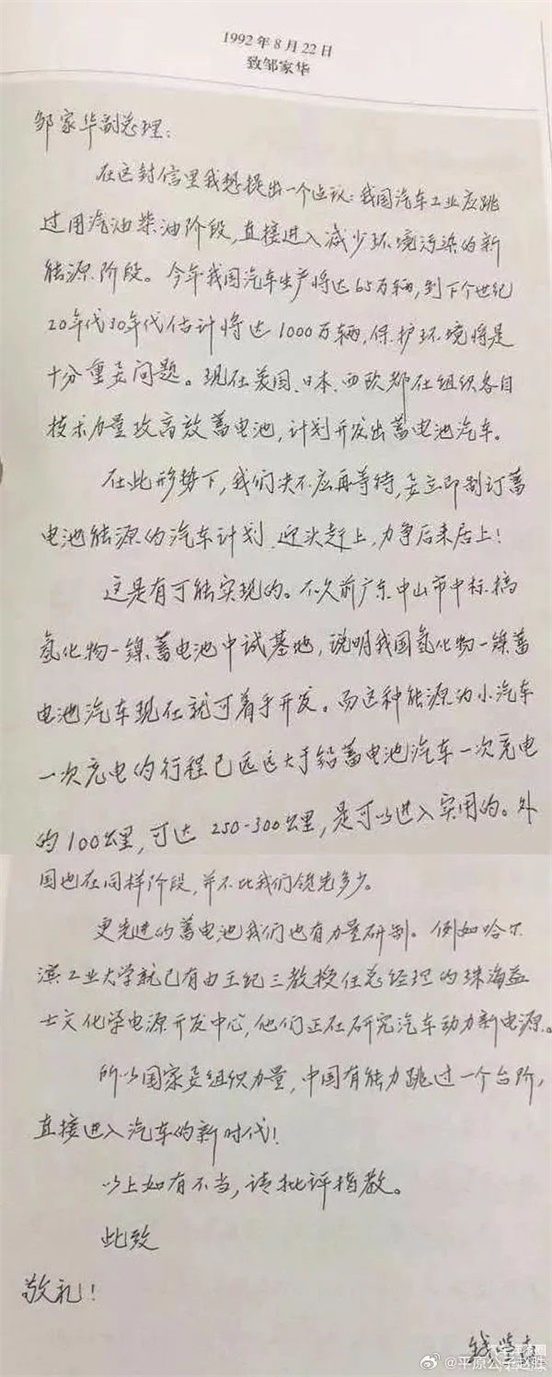 1992年8月22日
致邹家华
邹家华副总理:
在这封信里我想提出一个建议:我国汽车工业应跳
过用汽油柴油阶段,直接进入减少环境污染的新
能源阶段。今年我国汽车生产将达65万辆,到下个世纪
20年代30年代估计将达1000万辆,保护环境将是
十分重要问题。现在美国、日本、西欧都在组织各自
技术力量攻高效蓄电池,计划开发出蓄电池汽车。
在此形势下,我们决不应再等待,要立即制订蓄
电池能源的汽车计划,迎头赶上,力争后来居上!
这是有可能实现的。不久前广东中山市中标搞
氢化物—镍蓄电池中试基地,说明我国氢化物—镍蓄
电池汽车现在就可着手开发。而这种能源的小汽车
一次充电的行程已远远大于铅蓄电池汽车一次充电
的100公里,可达250-300公里,是可以进入实用的。外
国也在同样阶段,并不比我们领先多少。
更先进的蓄电池我们也有力量研制。例如哈尔
滨工业大学就已有由王纪三教授任总经理的珠海益
士文化学电源开发中心,他们正在研究汽车动力新电源。
所以国家要组织力量,中国有能力跳过一个台阶,
直接进入汽车的新时代!
以上如有不当,请批评指教。
此致
敬礼!
钱学森
@平原公子赵胜